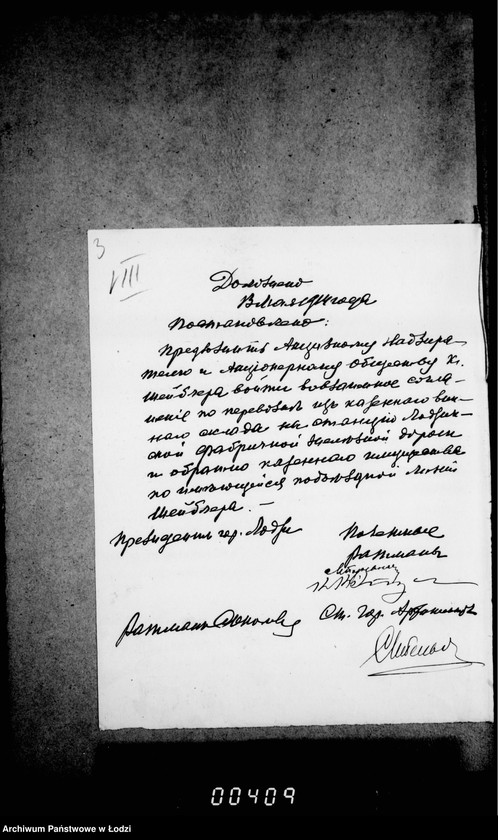 3
VIII
Доложено
8 мая 1911 года
Постановлено:
Предложить Акцизному Надзира-
телю и Акционерному обществу К.
Шейблера войти во взаимное согла-
шение по перевозке из казенного вин-
наго склада на станцию Лодзин-
ской фабричной железной дороги
и обратно казенного имущества
по имеющейся подъездной линии
Шейблера. —
Президент гор. Лодзи
Почетные
Ратманы
Ратман
Ст. гор.
00409
Archiwum Państwowe w Łodzi